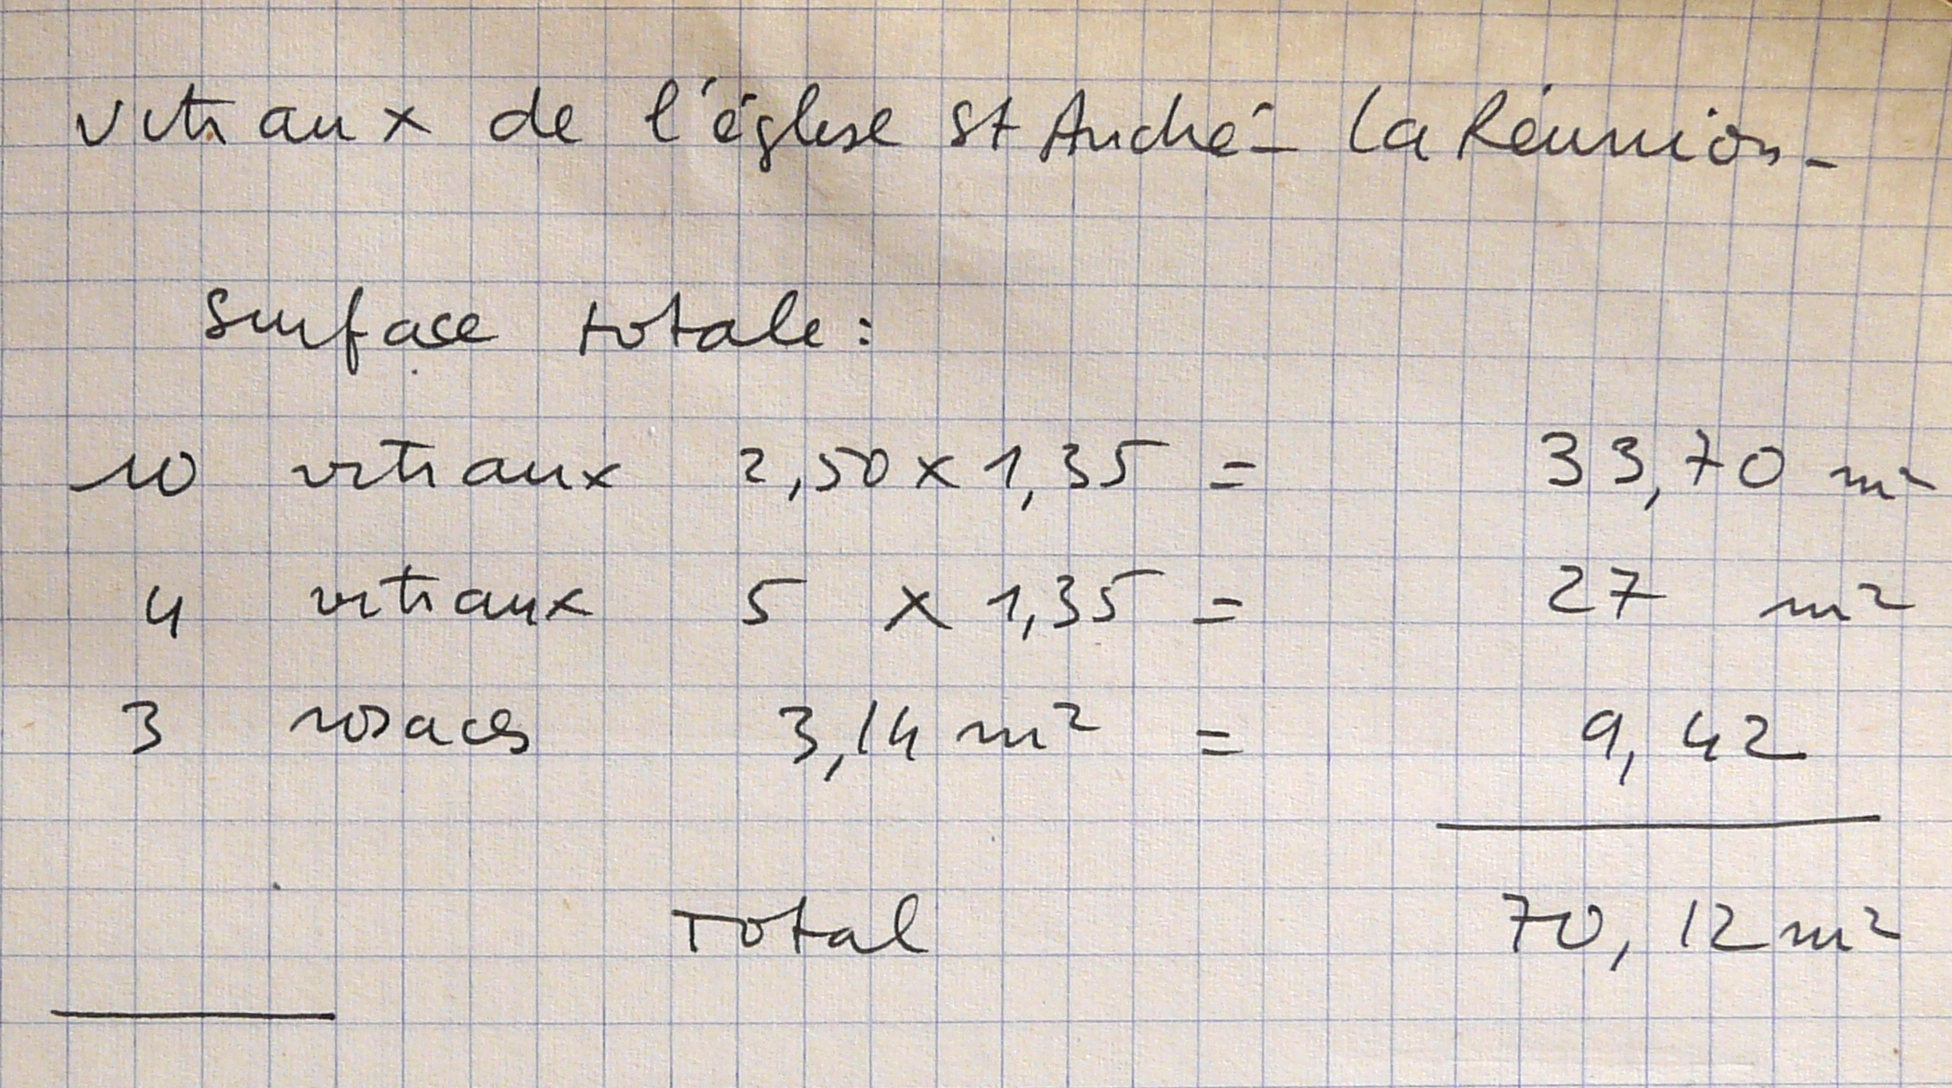 vitraux de l'église St André - La Réunion -
Surface totale :
10 vitraux 2,50 x 1,35 = 33,70 m²
4 vitraux 5 x 1,35 = 27 m²
3 rosaces 3,14 m² = 9,42
Total 70,12 m²